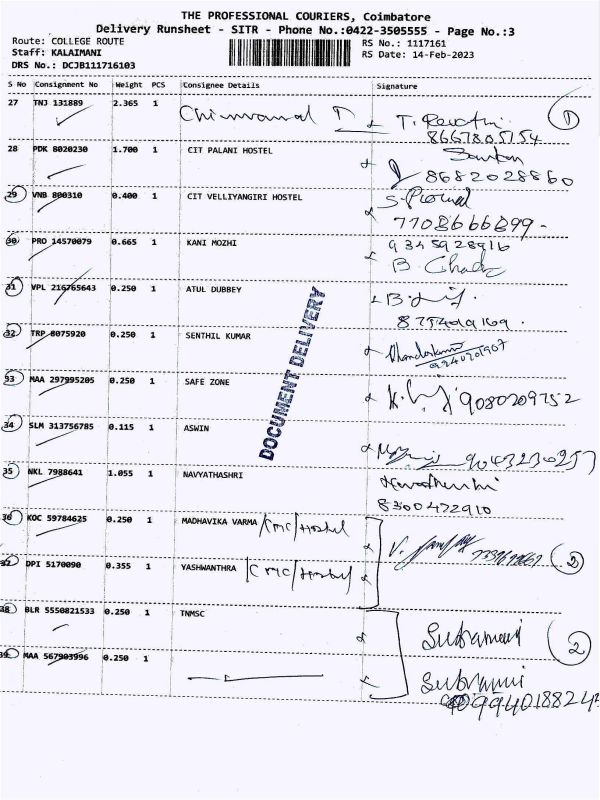 THE PROFESSIONAL COURIERS, Coimbatore
Delivery Runsheet - SITR - Phone No.:0422-3505555 - Page No.:3
Route: COLLEGE ROUTE RS No.: 1117161
Staff: KALAIMANI RS Date: 14-Feb-2023
DRS No.: DCJB111716103
S No Consignment No Weight PCS Consignee Details Signature
27 TNJ 131889 2.365 1 T. Revathi 1
8667805754
28 PDK 8020230 1.700 1 CIT PALANI HOSTEL
8682028860
29 VNB 800310 0.400 1 CIT VELLIYANGIRI HOSTEL
7708666899
30 PRO 14570079 0.665 1 KANI MOZHI 9345928916
31 VPL 216765643 0.250 1 ATUL DUBBEY
32 TRP 8075920 0.250 1 SENTHIL KUMAR
33 MAA 297995205 0.250 1 SAFE ZONE 9080209752
34 SLM 313756785 0.115 1 ASWIN
9043230253
35 NKL 7988641 1.055 1 NAVYATHASHRI
8300472910
36 KOC 59784625 0.250 1 MADHAVIKA VARMA /CMC/Hostel
37 DPI 5170090 0.355 1 YASHWANTHRA /CMC/Hostel 2
38 BLR 5550821533 0.250 1 TNMSC 2
39 MAA 567903996 0.250 1
9940188245
DOCUMENT DELIVERY